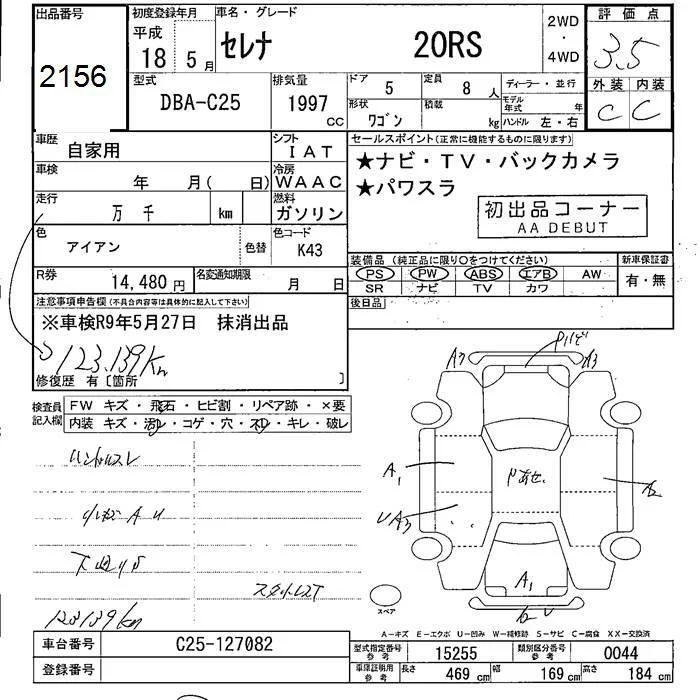 出品番号 2156
初度登録年月 平成 18 5月
車名・グレード セレナ 20RS
2WD・4WD
評価点 3.5
外装 内装
C C
型式 DBA-C25
排気量 1997 CC
ドア 5
定員 8 人
ディーラー・並行
形状 ワゴン
積載 kg
モデル年式 年
ハンドル 左・右
車歴 自家用
シフト IAT
セールスポイント(正常に機能するものに限ります)
車検 年 月( 日)
冷房 WAAC
★ナビ・TV・バックカメラ
★パワスラ
走行 万 千 km
燃料 ガソリン
初出品コーナー
AA DEBUT
色 アイアン
色替
色コード K43
装備品 (純正品に限り○をつけてください)
新車保証書
PS PW ABS エアB AW
有・無
SR ナビ TV カワ
R券 14,480円
名変通知期限 月 日
後日品
注意事項申告欄(不具合内容等は具体的に記入して下さい)
※車検R9年5月27日 抹消出品
123,139Km
修復歴 有〔箇所 〕
検査員記入欄
FW キズ・飛石・ヒビ割・リペア跡・×要
内装 キズ・汚レ・コゲ・穴・スレ・キレ・破レ
ハンドルスレ
小キズ A U
下廻りS
スタットレスT
123139km
A3
A3
A1
A2
UA3
A1
スペア
A-キズ E-エクボ U-凹み W-補修跡 S-サビ C-腐食 XX-交換済
車台番号 C25-127082
型式指定番号 参考 15255
類別区分番号 参考 0044
登録番号
車庫証明用 参考 長さ 469 cm 幅 169 cm 高さ 184 cm